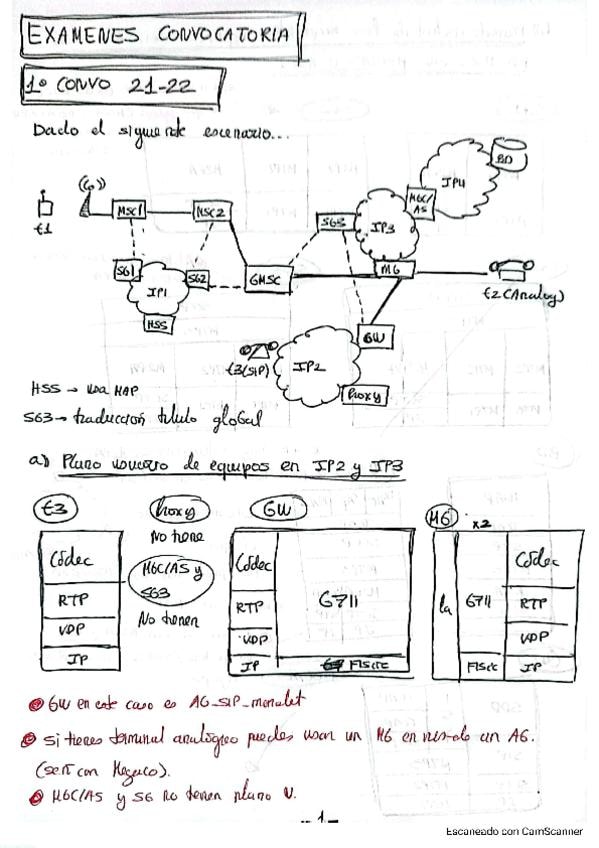 EXAMENES CONVOCATORIA
1º CONVO 21-22
Dado el siguiente escenario...
BD
IP4
MGC/
AS
MSC1
MSC2
SG3
IP3
t1
SG1
SG2
GMSC
MG
IP1
t2 (Analog)
HSS
GW
t3(SIP)
IP2
Proxy
HSS → usa MAP
SG3 → traducción título global
a) Plano usuario de equipos en IP2 y IP3
t3
Proxy
GW
MG x2
No tiene
Códec
Códec
Códec
MGC/AS y
SG3
G711
la
G711
RTP
RTP
RTP
No tienen
UDP
UDP
UDP
IP
IP
Físico
Físico
IP
GW en este caso es AG_SIP_monolit
Si tienes terminal analógico puedes usar un MG en vez de un AG.
(será con Megaco).
MGC/AS y SG no tienen plano U.
-- 1 --
Escaneado con CamScanner